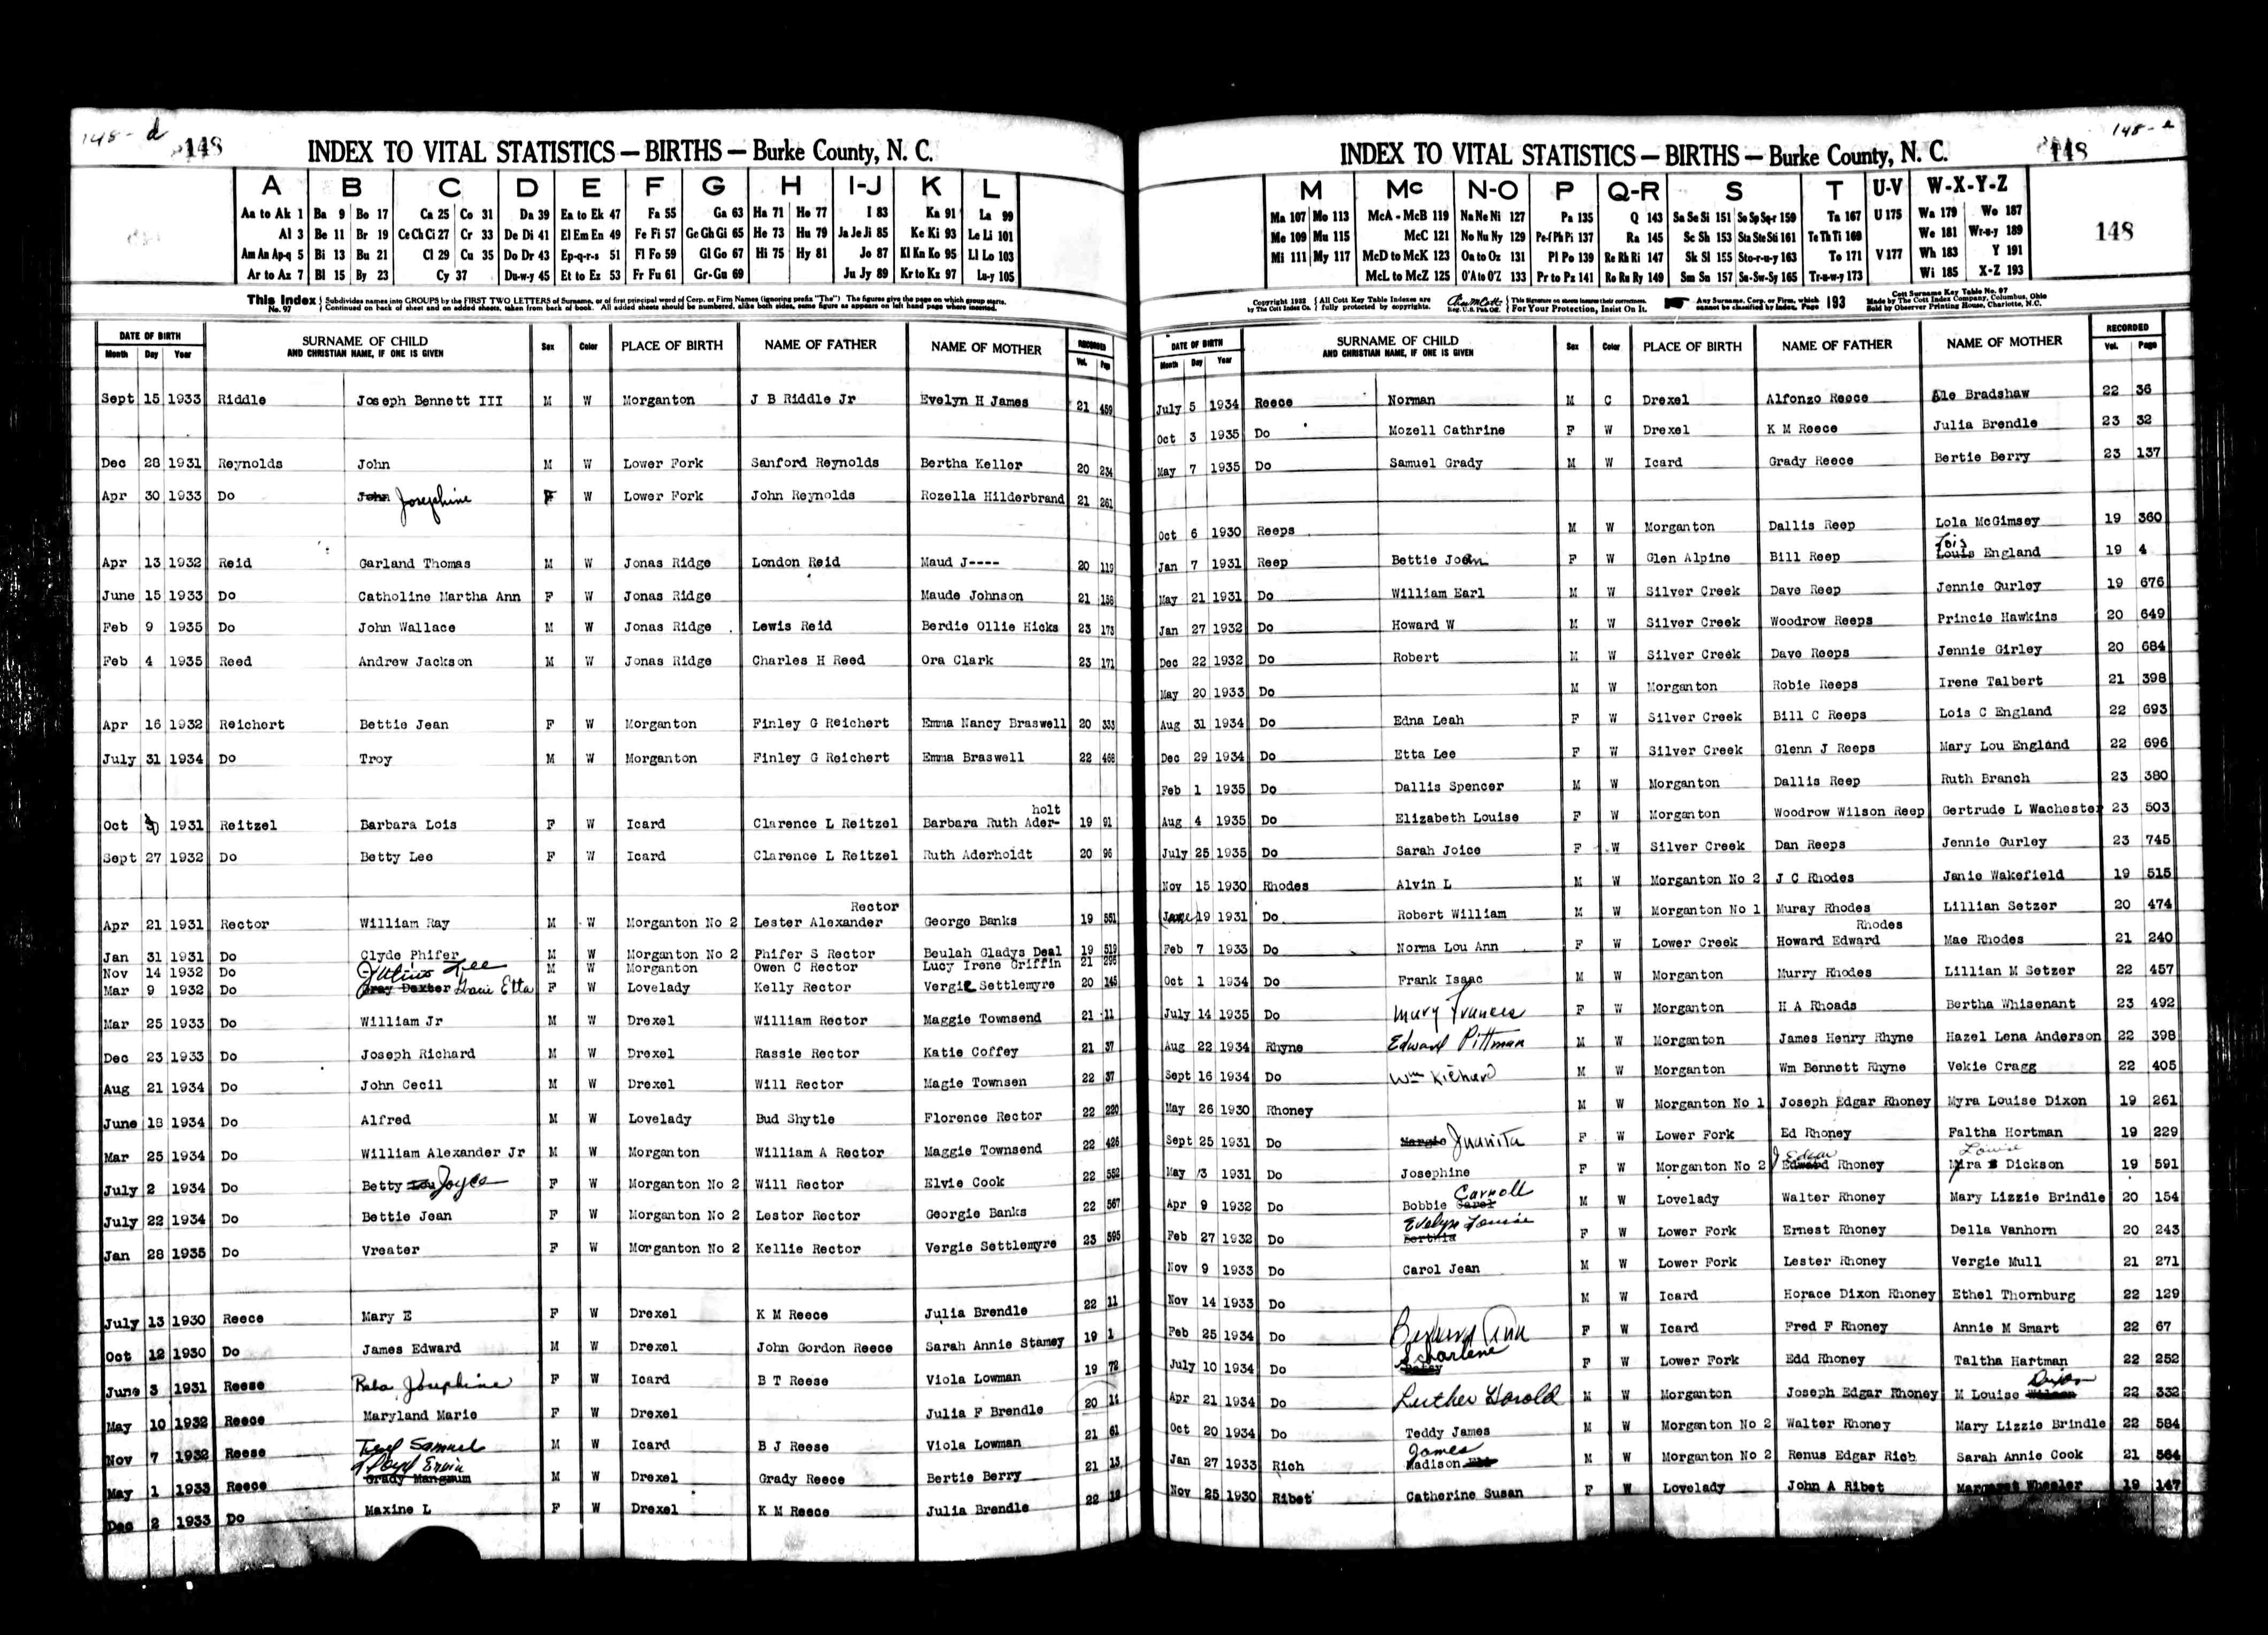 148- d
148
INDEX TO VITAL STATISTICS — BIRTHS — Burke County, N. C.
A B C D E F G H I-J K L
Aa to Ak 1 Ba 9 Bo 17 Ca 25 Co 31 Da 39 Ea to Ek 47 Fa 55 Ga 63 Ha 71 Ho 77 I 83 Ka 91 La 99
Al 3 Be 11 Br 19 Ce Ch Ci 27 Cr 33 De Di 41 El Em En 49 Fe Fi 57 Ge Gh Gi 65 He 73 Hu 79 Ja Je Ji 85 Ke Ki 93 Le Li 101
Am An Ap-q 5 Bi 13 Bu 21 Cl 29 Cu 35 Do Dr 43 Ep-q-r-s 51 Fl Fo 59 Gl Go 67 Hi 75 Hy 81 Jo 87 Kl Kn Ko 95 Ll Lo 103
Ar to Az 7 Bl 15 By 23 Cy 37 Du-w-y 45 Et to Ez 53 Fr Fu 61 Gr-Gu 69 Ju Jy 89 Kr to Kz 97 Lu-y 105
This Index No. 97 Subdivides names into GROUPS by the FIRST TWO LETTERS of Surname, or of first principal word of Corp. or Firm Names (ignoring prefix "The") The figures give the page on which group starts.
Continued on back of sheet and on added sheets, taken from back of book. All added sheets should be numbered, alike both sides, same figure as appears on left hand page where inserted.
DATE OF BIRTH Month Day Year SURNAME OF CHILD AND CHRISTIAN NAME, IF ONE IS GIVEN Sex Color PLACE OF BIRTH NAME OF FATHER NAME OF MOTHER RECORDED Vol. Page
Sept 15 1933 Riddle Joseph Bennett III M W Morganton J B Riddle Jr Evelyn H James 21 459
Dec 28 1931 Reynolds John M W Lower Fork Sanford Reynolds Bertha Keller 20 234
Apr 30 1933 Do John Josephine F W Lower Fork John Reynolds Rozella Hilderbrand 21 261
Apr 13 1932 Reid Garland Thomas M W Jonas Ridge London Reid Maud J---- 20 119
June 15 1933 Do Catholine Martha Ann F W Jonas Ridge Maude Johnson 21 156
Feb 9 1935 Do John Wallace M W Jonas Ridge Lewis Reid Berdie Ollie Hicks 23 173
Feb 4 1935 Reed Andrew Jackson M W Jonas Ridge Charles H Reed Ora Clark 23 171
Apr 16 1932 Reichert Bettie Jean F W Morganton Finley G Reichert Emma Nancy Braswell 20 333
July 31 1934 Do Troy M W Morganton Finley G Reichert Emma Braswell 22 468
holt
Oct 30 1931 Reitzel Barbara Lois F W Icard Clarence L Reitzel Barbara Ruth Ader- 19 91
Sept 27 1932 Do Betty Lee F W Icard Clarence L Reitzel Ruth Aderholdt 20 96
Rector
Apr 21 1931 Rector William Ray M W Morganton No 2 Lester Alexander George Banks 19 551
Jan 31 1931 Do Clyde Phifer M W Morganton No 2 Phifer S Rector Beulah Gladys Deal 19 519
Nov 14 1932 Do Julius Lee M W Morganton Owen C Rector Lucy Irene Griffin 21 296
Mar 9 1932 Do Dexter Etta F W Lovelady Kelly Rector Vergie Settlemyre 20 145
Mar 25 1933 Do William Jr M W Drexel William Rector Maggie Townsend 21 11
Dec 23 1933 Do Joseph Richard M W Drexel Rassie Rector Katie Coffey 21 37
Aug 21 1934 Do John Cecil M W Drexel Will Rector Magie Townsen 22 37
June 18 1934 Do Alfred M W Lovelady Bud Shytle Florence Rector 22 220
Mar 25 1934 Do William Alexander Jr M W Morganton William A Rector Maggie Townsend 22 426
July 2 1934 Do Betty Joyce F W Morganton No 2 Will Rector Elvie Cook 22 582
July 22 1934 Do Bettie Jean F W Morganton No 2 Lestor Rector Georgie Banks 22 567
Jan 28 1935 Do Vreater F W Morganton No 2 Kellie Rector Vergie Settlemyre 23 595
July 13 1930 Reece Mary E F W Drexel K M Reece Julia Brendle 22 11
Oct 12 1930 Do James Edward M W Drexel John Gordon Reece Sarah Annie Stamey 19 1
June 3 1931 Reese Reba Josephine F W Icard B T Reese Viola Lowman 19 72
May 10 1932 Reece Maryland Marie F W Drexel Julia F Brendle 20 14
Nov 7 1932 Reese Samuel M W Icard B J Reese Viola Lowman 21 61
Floyd Ervin
May 1 1933 Reece Grady Mangmum M W Drexel Grady Reece Bertie Berry 21 13
Dec 2 1933 Do Maxine L F W Drexel K M Reece Julia Brendle 22 12
148-
148
INDEX TO VITAL STATISTICS — BIRTHS — Burke County, N. C.
M Mc N-O P Q-R S T U-V W-X-Y-Z
Ma 107 Mo 113 McA - McB 119 Na Ne Ni 127 Pa 135 Q 143 Sa Se Si 151 So Sp Sq-r 159 Ta 167 U 175 Wa 179 Wo 187
Me 109 Mu 115 McC 121 No Nu Ny 129 Pe-f Ph Pi 137 Ra 145 Sc Sh 153 Sta Ste Sti 161 Te Th Ti 169 We 181 Wr-u-y 189
Mi 111 My 117 McD to McK 123 On to Oz 131 Pl Po 139 Re Rh Ri 147 Sk Sl 155 Sto-r-u-y 163 To 171 V 177 Wh 183 Y 191
McL to McZ 125 O'A to O'Z 133 Pr to Pz 141 Ro Ru Ry 149 Sm Sn 157 Su-Sw-Sy 165 Tr-u-w-y 173 Wi 185 X-Z 193
148
Copyright 1932 by The Cott Index Co. All Cott Key Table Indexes are fully protected by copyrights. Reg. U.S. Pat. Off. This Signature on sheets insures their correctness. For Your Protection, Insist On It. Any Surname, Corp. or Firm, which cannot be classified by Index, Page 193 Cott Surname Key Table No. 97 Made by The Cott Index Company, Columbus, Ohio Sold by Observer Printing House, Charlotte, N.C.
DATE OF BIRTH Month Day Year SURNAME OF CHILD AND CHRISTIAN NAME, IF ONE IS GIVEN Sex Color PLACE OF BIRTH NAME OF FATHER NAME OF MOTHER RECORDED Vol. Page
July 5 1934 Reece Norman M C Drexel Alfonzo Reece Ale Bradshaw 22 36
Oct 3 1935 Do Mozell Cathrine F W Drexel K M Reece Julia Brendle 23 32
May 7 1935 Do Samuel Grady M W Icard Grady Reece Bertie Berry 23 137
Oct 6 1930 Reeps M W Morganton Dallis Reep Lola McGimsey 19 360
Lois
Jan 7 1931 Reep Bettie Joan F W Glen Alpine Bill Reep Louis England 19 4
May 21 1931 Do William Earl M W Silver Creek Dave Reep Jennie Gurley 19 676
Jan 27 1932 Do Howard W M W Silver Creek Woodrow Reeps Princie Hawkins 20 649
Dec 22 1932 Do Robert M W Silver Creek Dave Reeps Jennie Girley 20 684
May 20 1933 Do M W Morganton Robie Reeps Irene Talbert 21 398
Aug 31 1934 Do Edna Leah F W Silver Creek Bill C Reeps Lois C England 22 693
Dec 29 1934 Do Etta Lee F W Silver Creek Glenn J Reeps Mary Lou England 22 696
Feb 1 1935 Do Dallis Spencer M W Morganton Dallis Reep Ruth Branch 23 380
Aug 4 1935 Do Elizabeth Louise F W Morganton Woodrow Wilson Reep Gertrude L Wachester 23 503
July 25 1935 Do Sarah Joice F W Silver Creek Dan Reeps Jennie Gurley 23 745
Nov 15 1930 Rhodes Alvin L M W Morganton No 2 J C Rhodes Janie Wakefield 19 515
June 19 1931 Do Robert William M W Morganton No 1 Muray Rhodes Lillian Setzer 20 474
Rhodes
Feb 7 1933 Do Norma Lou Ann F W Lower Creek Howard Edward Mae Rhodes 21 240
Oct 1 1934 Do Frank Isaac M W Morganton Murry Rhodes Lillian M Setzer 22 457
July 14 1935 Do Mary Frances F W Morganton H A Rhoads Bertha Whisenant 23 492
Aug 22 1934 Rhyne Edward Pittman M W Morganton James Henry Rhyne Hazel Lena Anderson 22 398
Sept 16 1934 Do Wm Richard M W Morganton Wm Bennett Rhyne Vekie Cragg 22 405
May 26 1930 Rhoney M W Morganton No 1 Joseph Edgar Rhoney Myra Louise Dixon 19 261
Sept 25 1931 Do Margie Juanita F W Lower Fork Ed Rhoney Faltha Hortman 19 229
J Edgar Louise
May 3 1931 Do Josephine F W Morganton No 2 Edward Rhoney Mira Dickson 19 591
Carroll
Apr 9 1932 Do Bobbie Carol M W Lovelady Walter Rhoney Mary Lizzie Brindle 20 154
Evelyn Louise
Feb 27 1932 Do F W Lower Fork Ernest Rhoney Della Vanhorn 20 243
Nov 9 1933 Do Carol Jean M W Lower Fork Lester Rhoney Vergie Mull 21 271
Nov 14 1933 Do M W Icard Horace Dixon Rhoney Ethel Thornburg 22 129
Feb 25 1934 Do Ann F W Icard Fred F Rhoney Annie M Smart 22 67
July 10 1934 Do Scharlene F W Lower Fork Edd Rhoney Taltha Hartman 22 252
Dixon
Apr 21 1934 Do Luther Harold M W Morganton Joseph Edgar Rhoney M Louise Wilson 22 332
Oct 20 1934 Do Teddy James M W Morganton No 2 Walter Rhoney Mary Lizzie Brindle 22 584
James
Jan 27 1933 Rich Madison M W Morganton No 2 Renus Edgar Rich Sarah Annie Cook 21 564
Nov 25 1930 Ribet Catherine Susan F W Lovelady John A Ribet Margaret Wheeler 19 147